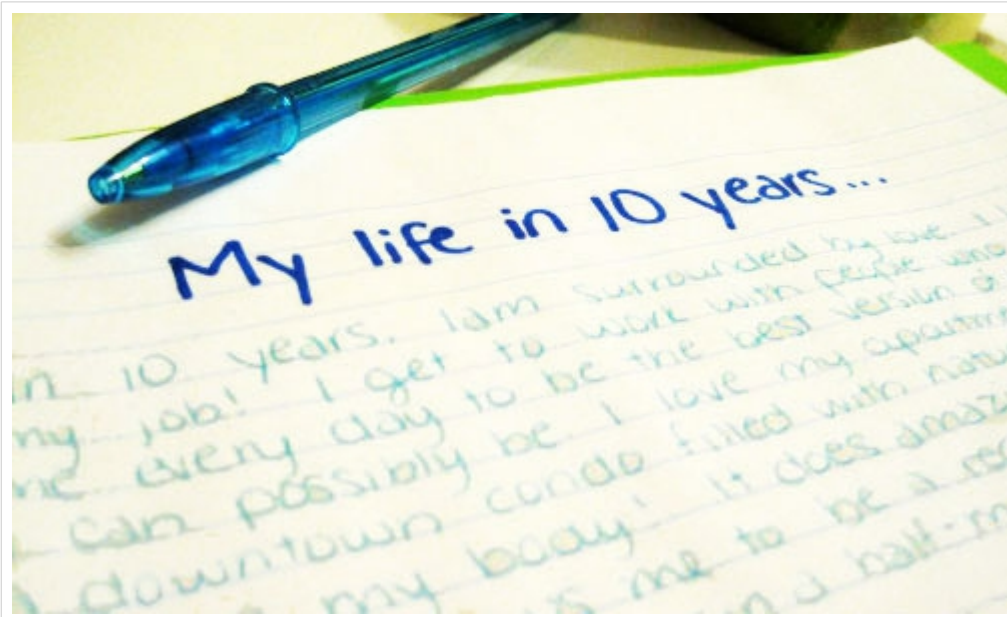 My life in 10 years...
10 years. I am surrounded by love. I
my job! I get to work with people who
every day to be the best version of
can possibly be. I love my apartm
downtown condo filled with natu
my body! It does amaz
me to be a re
a half-m